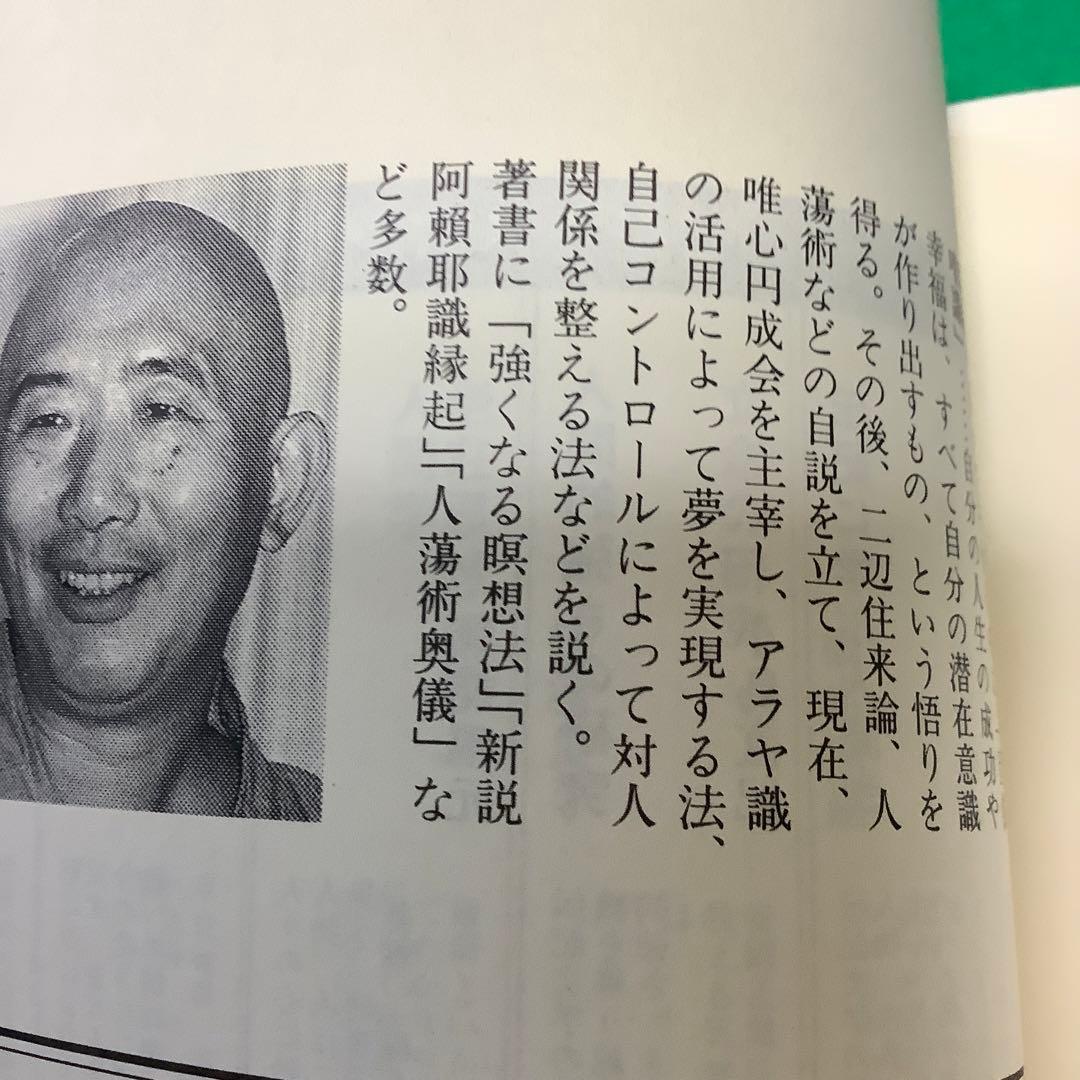 自分の人生の成功や
幸福は、すべて自分の潜在意識
が作り出すもの、という悟りを
得る。その後、二辺住来論、人
蕩術などの自説を立て、現在、
唯心円成会を主宰し、アラヤ識
の活用によって夢を実現する法、
自己コントロールによって対人
関係を整える法などを説く。
著書に「強くなる瞑想法」「新説
阿賴耶識縁起」「人蕩術奥儀」な
ど多数。